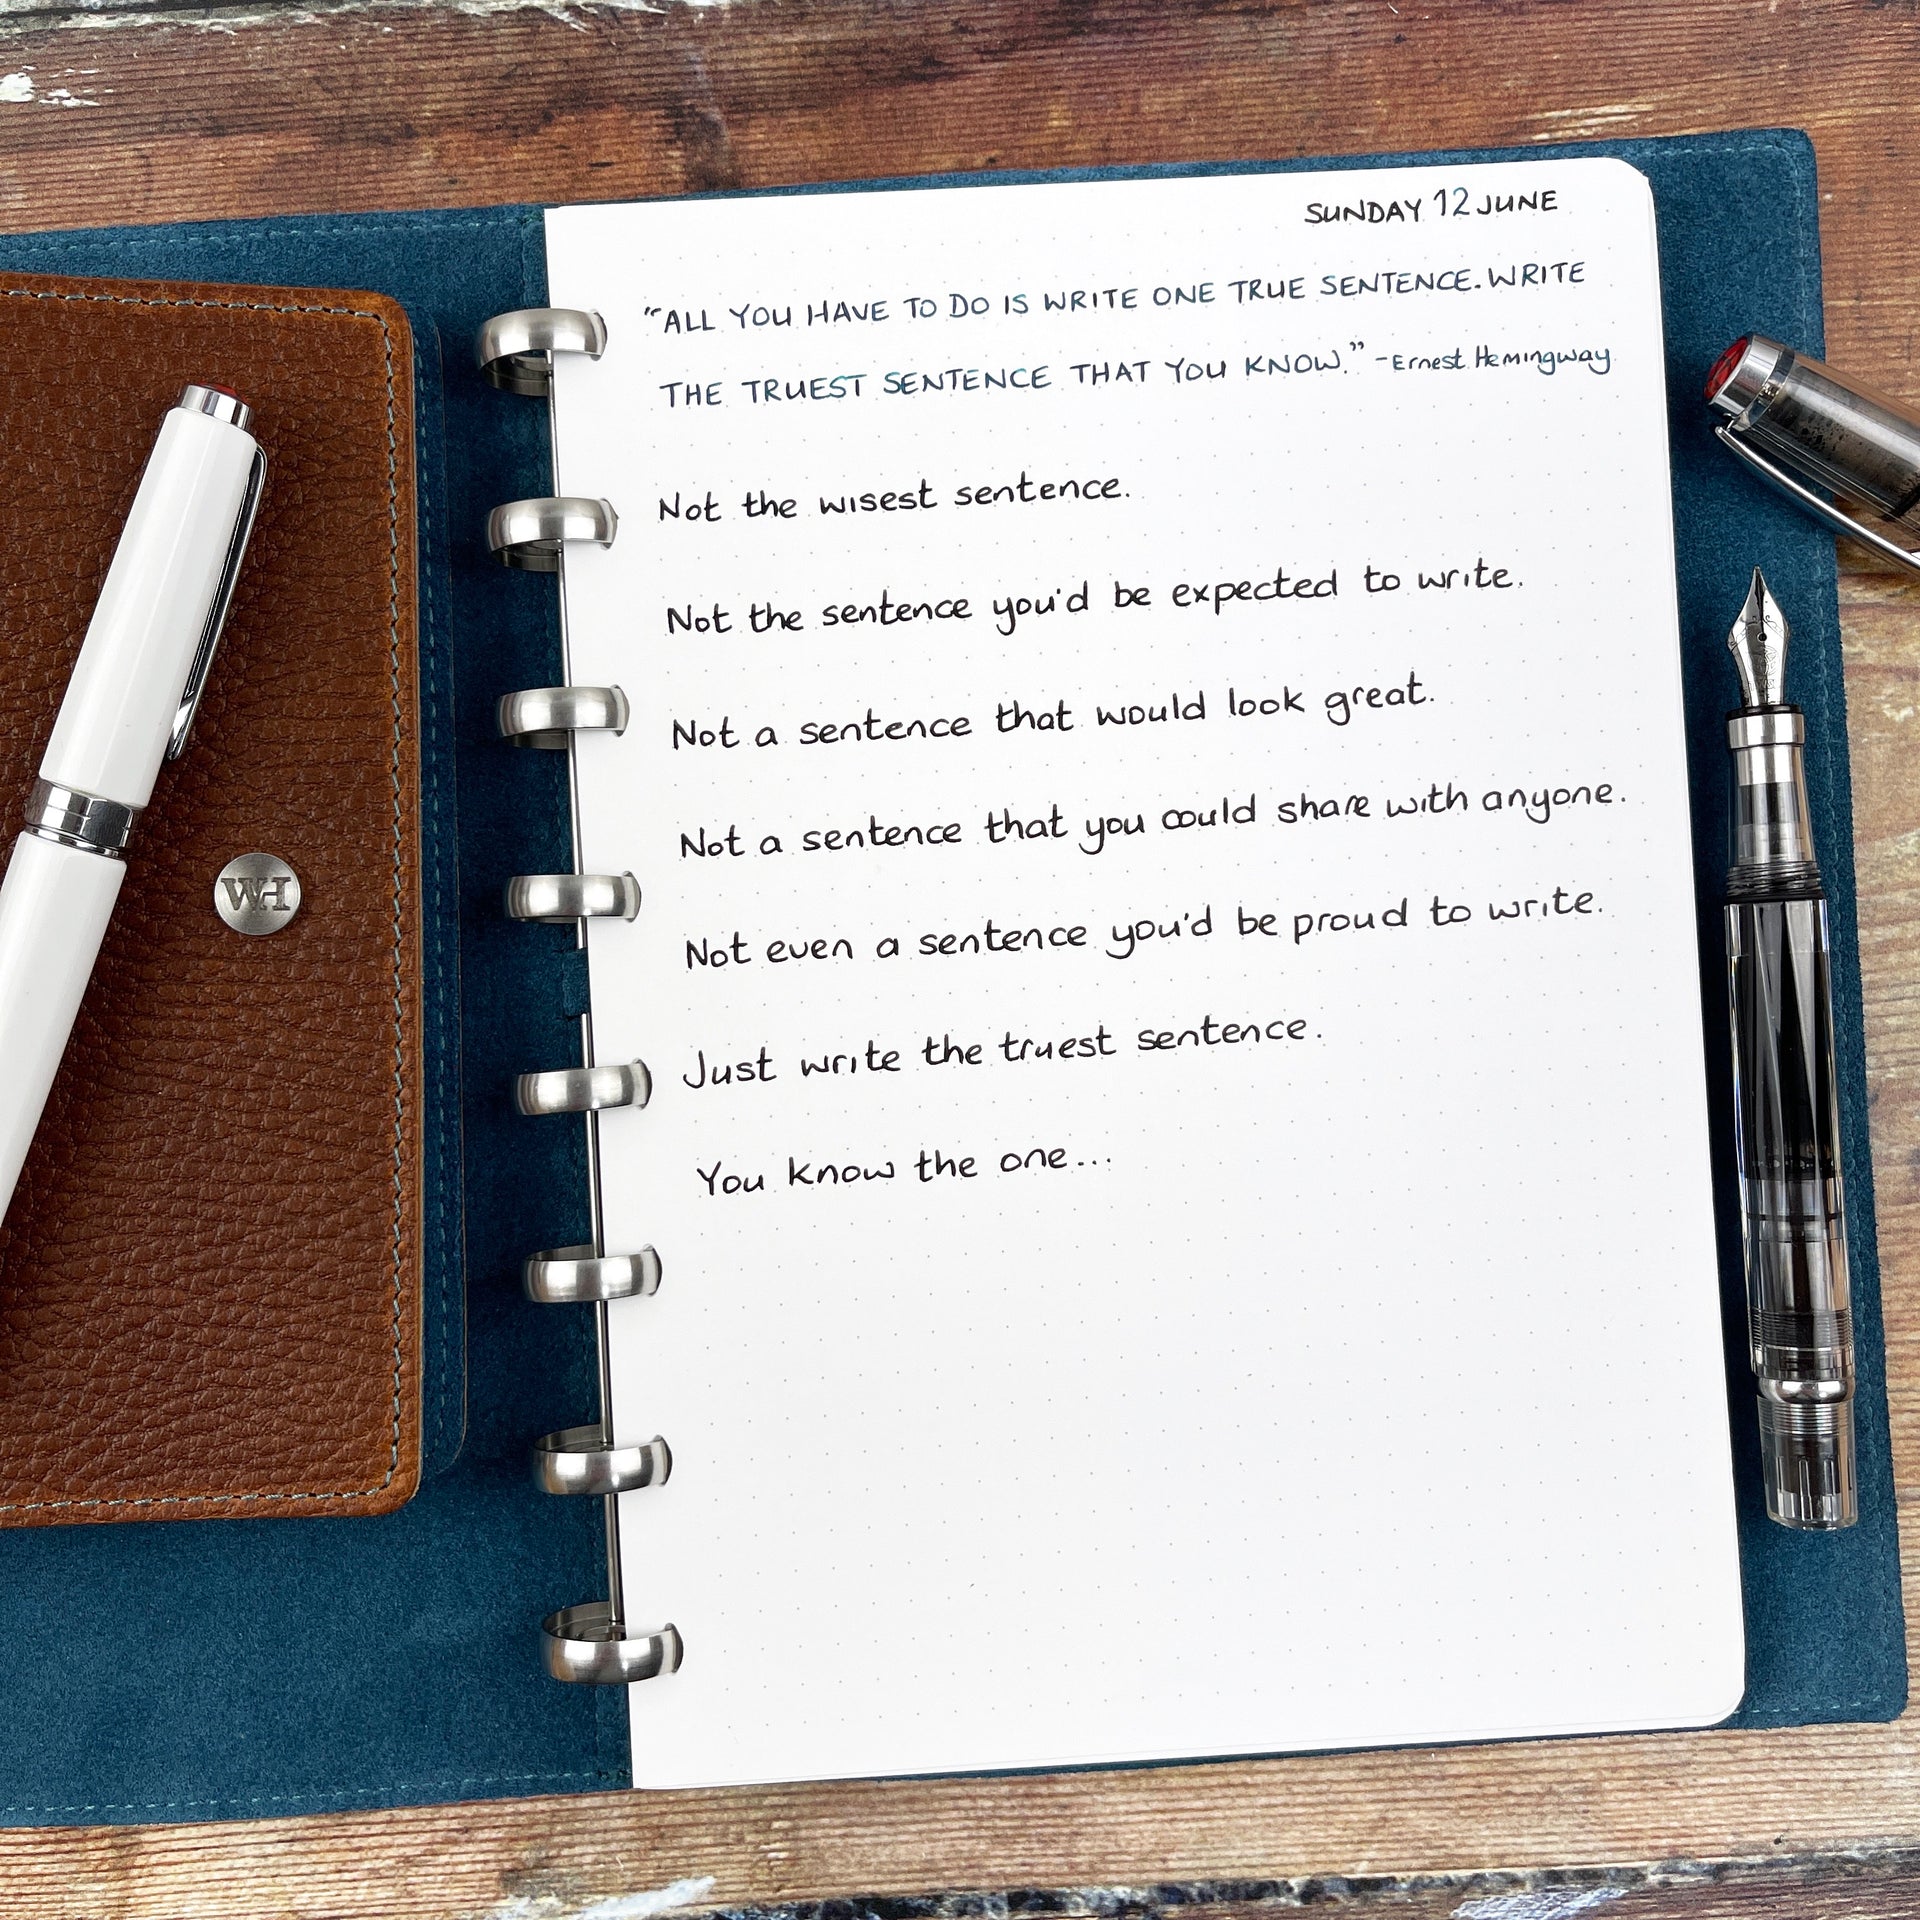 SUNDAY 12 JUNE
"ALL YOU HAVE TO DO IS WRITE ONE TRUE SENTENCE. WRITE
THE TRUEST SENTENCE THAT YOU KNOW." - Ernest Hemingway
Not the wisest sentence.
Not the sentence you'd be expected to write.
Not a sentence that would look great.
Not a sentence that you could share with anyone.
Not even a sentence you'd be proud to write.
Just write the truest sentence.
You know the one...
WH